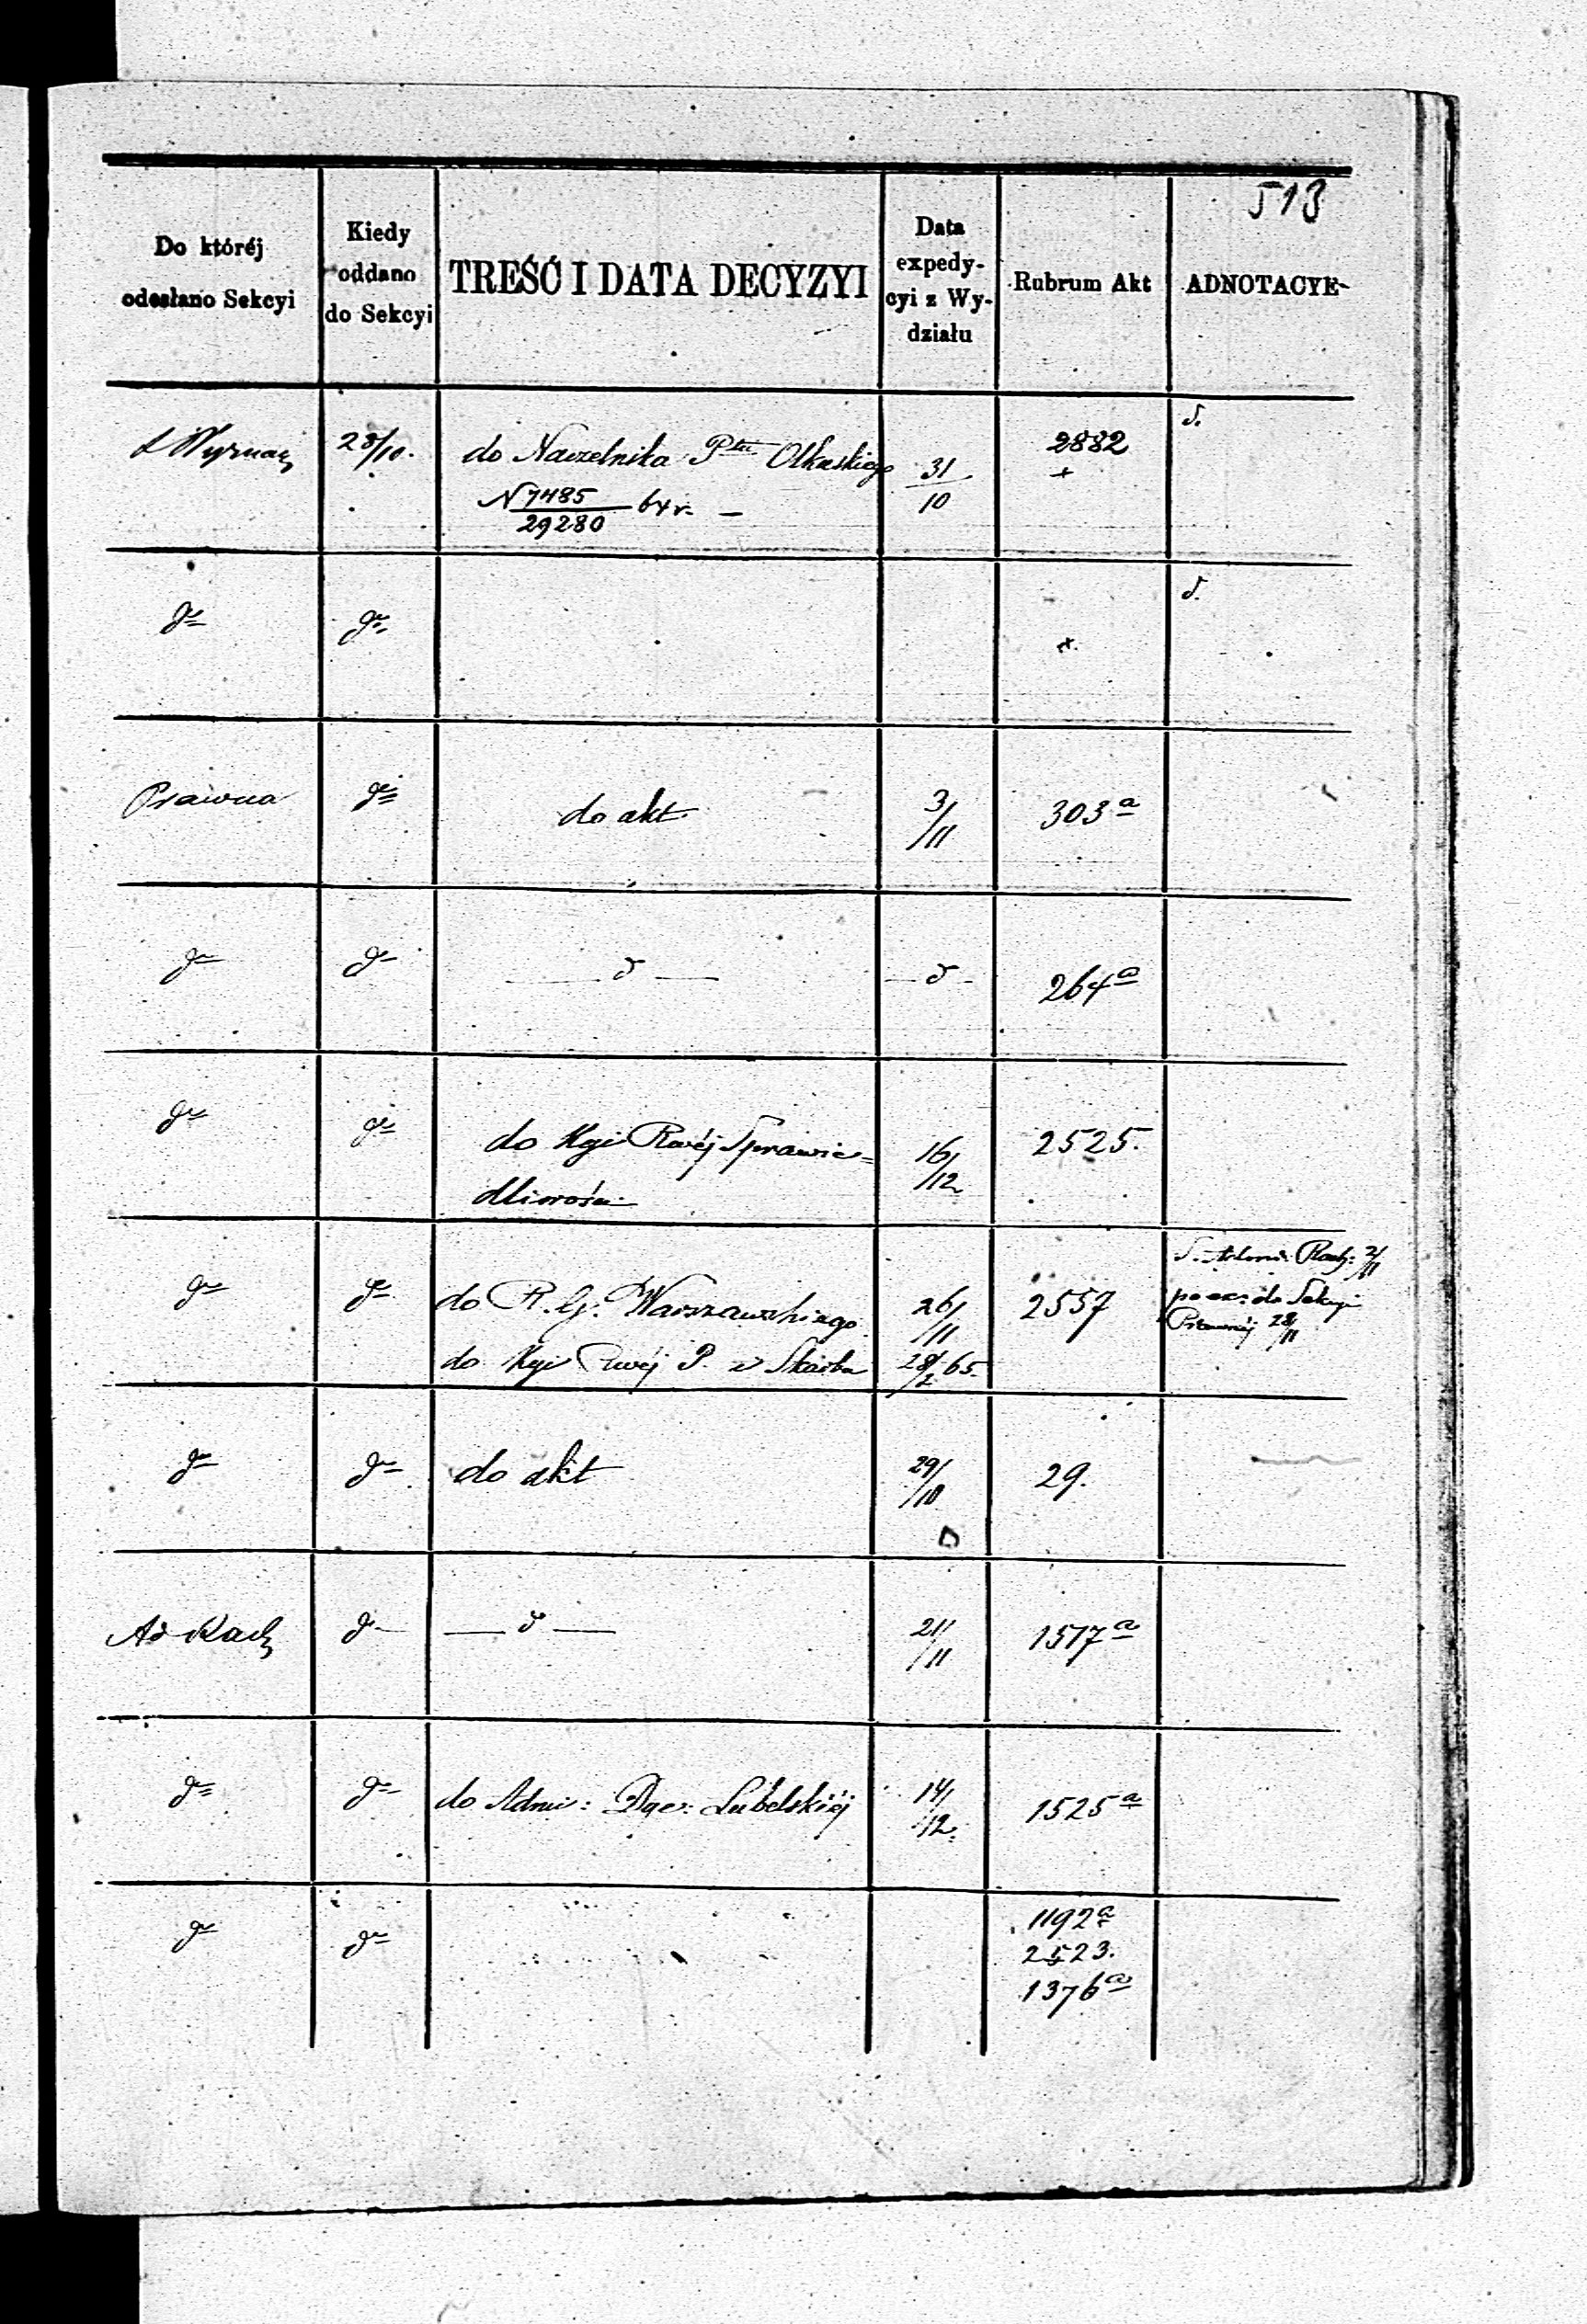 513
Do któréj
odesłano Sekcyi
Kiedy
oddano
do Sekcyi
TREŚĆ I DATA DECYZYI
Data
expedy-
cyi z Wy-
działu
Rubrum Akt
ADNOTACYE
28/10.
do Naczelnika Ptu Olkuskiego
N 7485/29280 64 r. —
31/10
2882
+
d.
dto
dto
+
d.
Prawna
dto
do akt
3/11
303 a
dto
dto
— d —
— d —
264 a
dto
dto
do Kyi Rwéj Sprawie=
dliwości
16/12
2525.
dto
dto
do R. G. Warszawskiego
26/11
2557
do Kyi Rwéj P. i Skarbu
28/2 65.
Rach: 2/11
do Sekcyi
Prawnéj 28/11
dto
dto
do akt
29/10
29.
Ad Rach
dto
— d —
21/11
1517 a
dto
dto
do Admi: Dyec: Lubelskiéj
14/12
1525 a
dto
dto
1192 a
2523.
1376 a